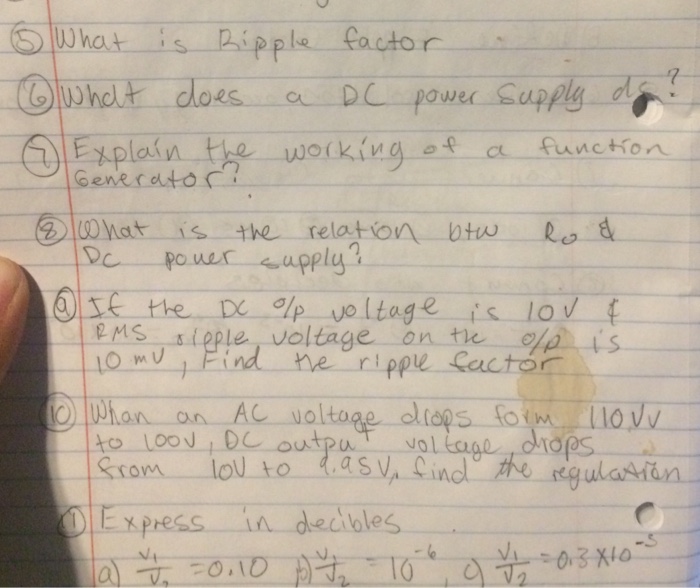 ⑤ What is Ripple factor
⑥ What does a DC power supply do?
⑦ Explain the working of a function
Generator?
⑧ What is the relation btw Ro &
Dc power supply?
⑨ If the DC o/p voltage is 10V &
RMS ripple voltage on the o/p is
10 mV, Find the ripple factor
⑩ Whan an AC voltage drops form 110Vv
to 100V, DC output voltage drops
from 10V to 9.95V, find the regulation
① Express in decibles
a) V1/V2 = 0.10 b) V1/V2 = 10^-6, c) V1/V2 = 0.3X10^-5